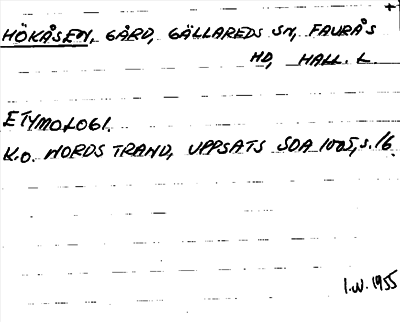 HÖKÅSEN, GÅRD, GÄLLAREDS SN, FAURÅS
HD, HALL. L.
ETYMOLOGI.
K.O. NORDSTRAND, UPPSATS SOA 1005, s. 16.
I.W. 1955